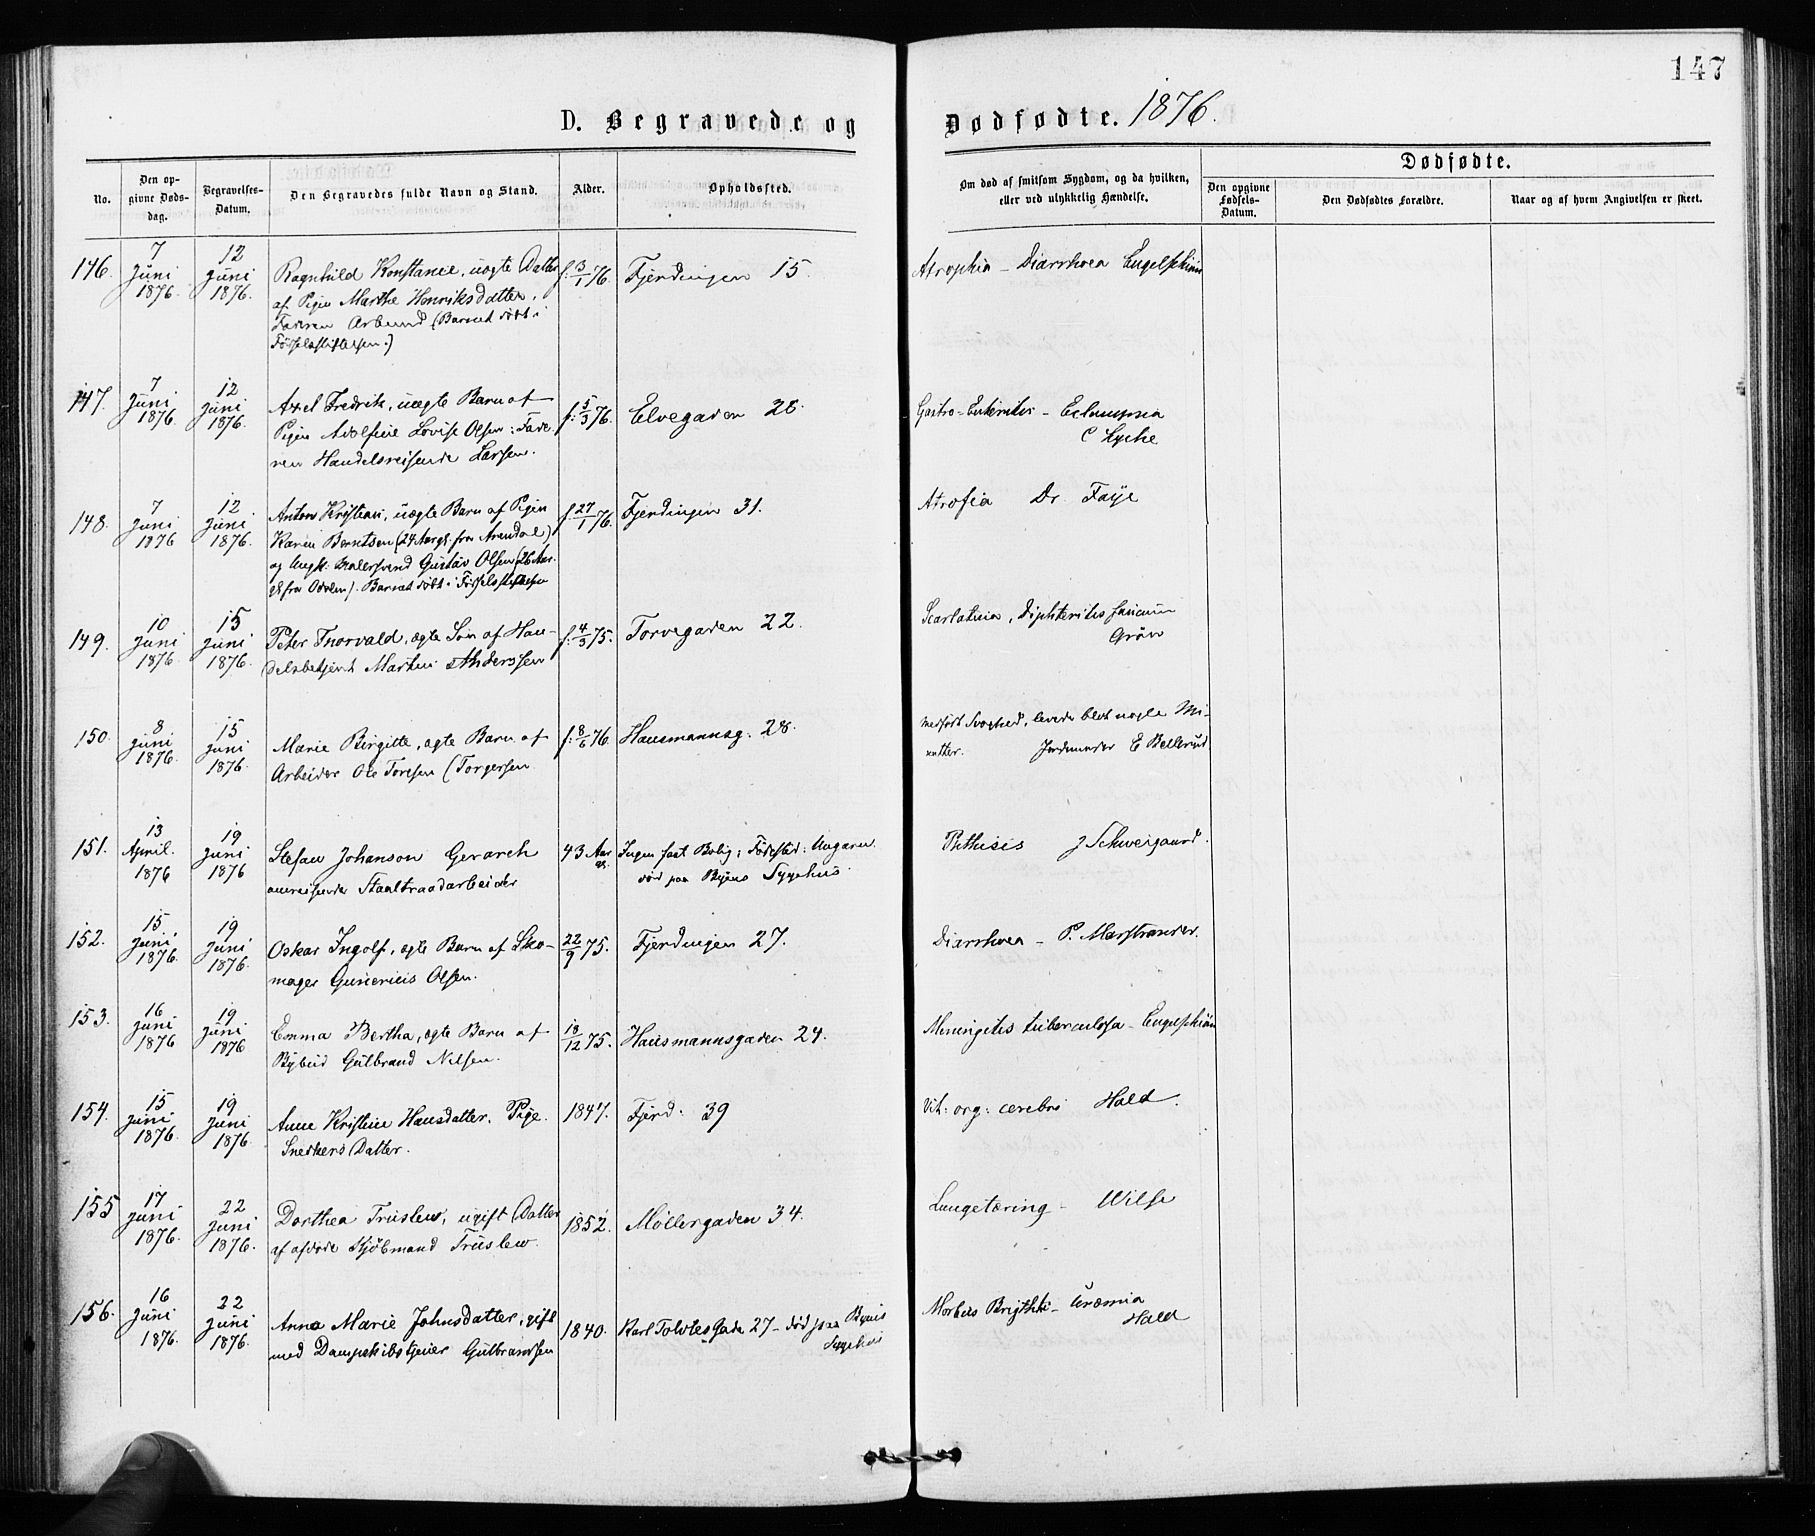 147
D. Begravede og Dødfødte. 1876.
No.
Den opgivne Dødsdag.
Begravelses-Datum.
Den Begravedes fulde Navn og Stand.
Alder.
Opholdssted.
Om død af smitsom Sygdom, og da hvilken, eller ved ulykkelig Hændelse.
Dødfødte.
Den opgivne Fødsels-Datum.
Den Dødfødtes Forældre.
Naar og af hvem Angivelsen er skeet.
146. 7 Juni 1876. 12 Juni 1876. Ragnhild Konstance, uægte Datter f. 3/1 76. Fjerdingen 15. Atrophia - Diarrhoea Engelschiøn
af Pigen Marthe Henriksdatter,
Faderen (Barnet født i
Fødselsstiftelsen.)
147. 7 Juni 1876. 12 Juni 1876. Axel Fredrik, uægte Barn af f. 5/3 76. Elvegaden 28. Gastro-Enteritis - Eclampsia
Pigen Adolfine Lovise Olsen: Fade- C Lyche
ren Handelsreisende Larsen.
148. 7 Juni 1876 12 Juni 1876. Anton Kristian, uægte Barn af Pigen f. 27/1 76. Fjerdingen 31. Atrofia Dr. Faye
Karen Berntsen (24 Aar gl. fra Arendal)
og Ungk. Malersvend Gustav Olsen (26 Aar
gl. fra Odalen). Barnet født i Fødselsstiftelsen
149. 10 Juni 1876. 15 Juni 1876. Peter Thorvald, ægte Søn af Han- f. 4/3 75. Torvegaden 22. Scarlatina, Diphteritis faucium
delsbetjent Martin Anderssen Grøn
150. 8 Juni 1876. 15 Juni 1876. Marie Birgitte, ægte Barn af f. 8/6 76. Hausmannsg. 28. Medfødt Svaghed, levede blot nogle Mi-
Arbeider Ole Toresen (Torgersen nutter. Jordemoder E Bellerud
151. 13 April. 1876 19 Juni 1876 Stefan Johanson Gerarch 43 Aar gl. Ingen fast Bolig; Fødested: Ungarn. Phthisis J Schweigaard.
omreisende Staaltraadarbeider død paa Byens Sygehus.
152. 15 Juni 1876. 19 Juni 1876. Oskar Ingolf, ægte Barn af Sko- 22/9 75. Fjerdingen 27. Diarrhoea - P. Marstrander.
mager Gunerius Olsen.
153. 16 Juni 1876 19 Juni 1876 Emma Bertha, ægte Barn af 18/12 75. Hausmannsgaden 24. Meningitis tuberculosa - Engelschiøn
Bybud Gulbrand Nilsen.
154. 15 Juni 1876. 19 Juni 1876. Anne Kristine Hansdatter. Pige. 1847. Fjerd: 39 Vit: org: cerebri Hald.
Snedkers Datter.
155 17 Juni 1876. 22 Juni 1876. Dorthea Truslew, ugift Datter 1852. Møllergaden 34. Lungetæring - Wilse
af afdøde Kjøbmand Truslew.
156. 16 Juni 1876. 22 Juni 1876. Anna Marie Johnsdatter, gift 1840. Karl Gade 27 - død paa Byens Morbus Brigthii - Uræmia
med Dampskibstjener Gulbrandsen Sygehus Hald